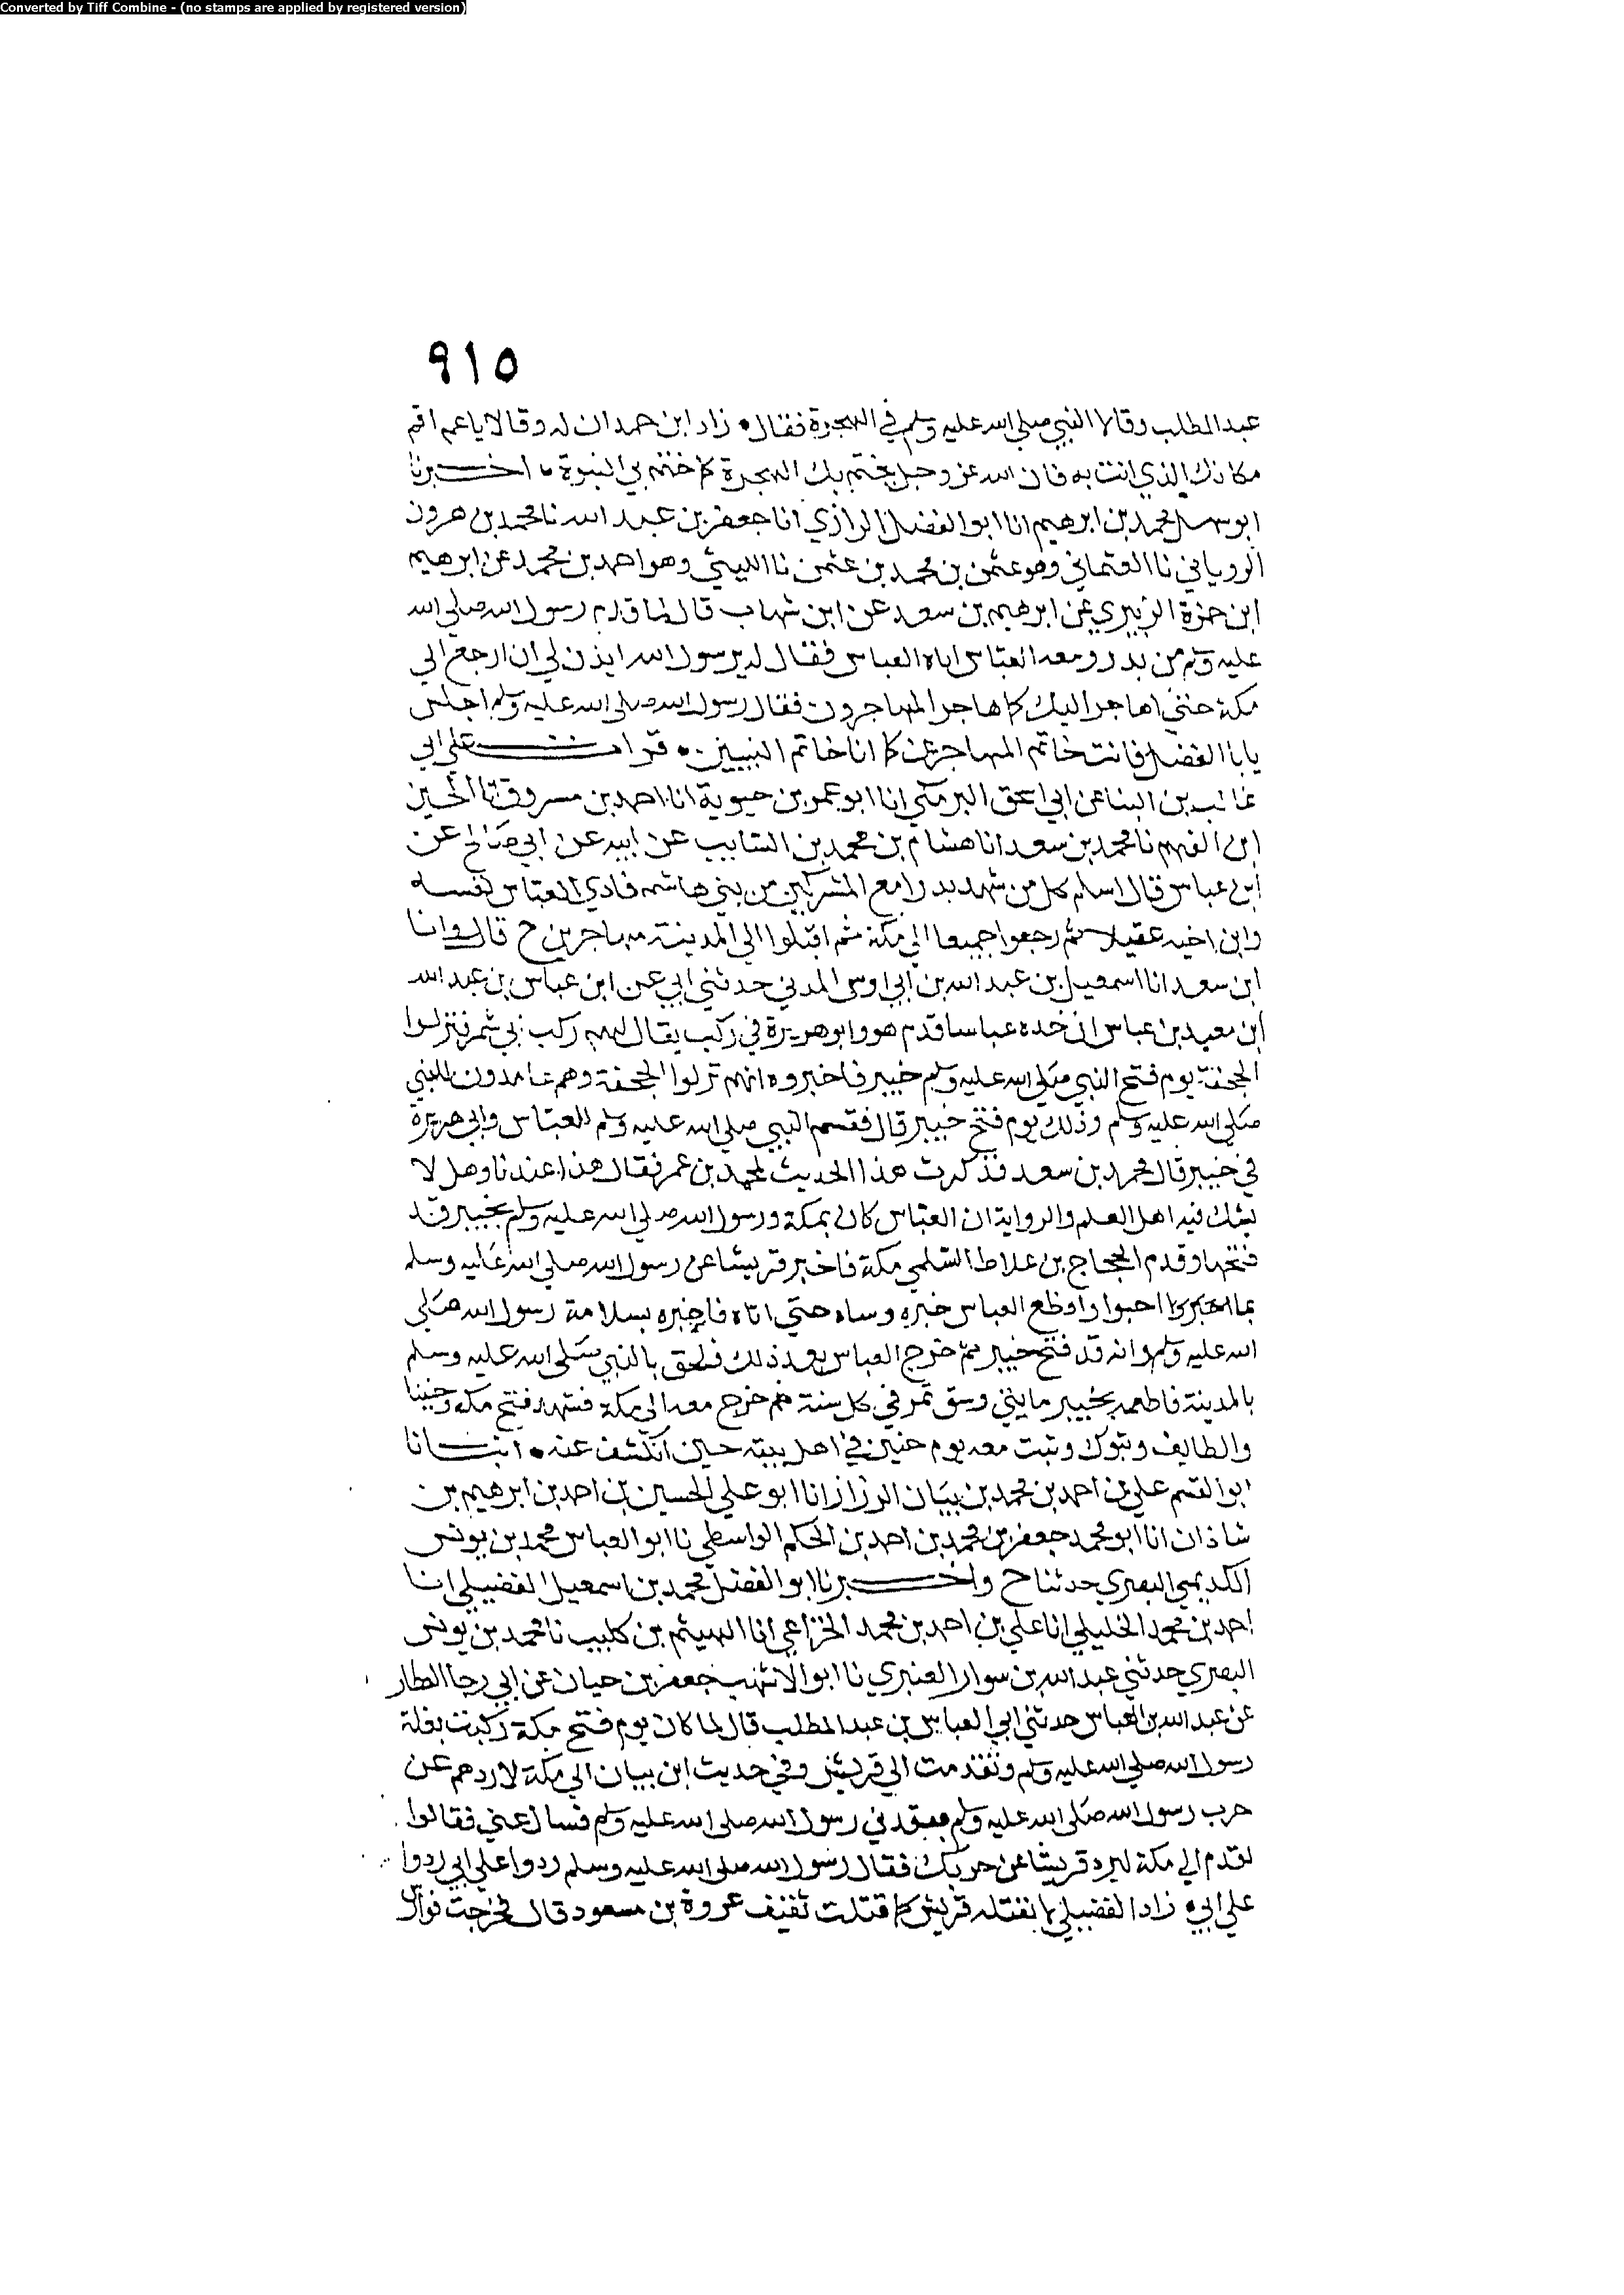 Converted by Tiff Combine - (no stamps are applied by registered version)
٩١٥
عبد المطلب وقالا النبي صلى الله عليه وسلم في الهجرة فقال زاد ابن حمدان له وقالا يا عم اقم
مكانك الذي انت به فان الله عز وجل يختم بك الهجرة كما ختم بي النبوة اخبرنا
ابو سهل محمد بن ابرهيم انا ابو الفضل الرازي انا جعفر بن عبد الله نا محمد بن هرون
الروياني نا العثماني وهو عثمن بن محمد بن عثمن نا الليثي وهو احمد بن محمد عن ابرهيم
ابن حمزة الزبيري عن ابرهيم بن سعد عن ابن شهاب قال لما قدم رسول الله صلى الله
عليه وسلم من بدر ومعه العباس اباه العباس فقال له يرسول الله ايذن لي ان ارجع الي
مكة حتي اهاجر اليك كما هاجر المهاجرون فقال رسول الله صلى الله عليه وسلم اجلس
يابا الفضل فانت خاتم المهاجرين كما انا خاتم النبيين قرات علي ابي
غالب بن البنا عن ابي اسحق البرمكي انا ابو عمر بن حيوية انا احمد بن مسروق نا الحسين
ابن الفهم نا محمد بن سعد انا هشام بن محمد بن السايب عن ابيه عن ابي صالح عن
ابن عباس قال اسلم كل من شهد بدرا مع المشركين من بني هاشم فادي العباس نفسه
وابن اخيه عقيلا ثم رجعوا جميعا الي مكة ثم اقبلوا الي المدينة مهاجرين ح قال وانا
ابن سعد انا اسمعيل بن عبد الله بن ابي اوس المدني حدثني ابي عن ابن عباس بن عبد الله
ابن معبد بن عباس ان جده عباسا قدم هو وابو هريرة في ركب يقال لهم ركب ابي شمر فنزلوا
الجحفة يوم فتح النبي صلى الله عليه وسلم خيبر فاخبروه انهم نزلوا الجحفة وهم عامدون للنبي
صلى الله عليه وسلم وذلك يوم فتح خيبر قال فقسم النبي صلى الله عليه وسلم للعباس وابي هريرة
في خيبر قال محمد بن سعد فذكرت هذا الحديث لمحمد بن عمر فقال هذا عندنا وهل لا
يشك فيه اهل العلم والرواية ان العباس كان بمكة ورسول الله صلى الله عليه وسلم بخيبر قد
فتحها وقدم الحجاج بن علاط السلمي مكة فاخبر قريشا عن رسول الله صلى الله عليه وسلم
بما احبوا واوظع العباس خبره وساه حتي اتاه فاخبره بسلامة رسول الله صلى
الله عليه وسلم وانه قد فتح خيبر ثم خرج العباس بعد ذلك فلحق بالنبي صلى الله عليه وسلم
بالمدينة فاطعمه بخيبر مايتي وسق تمر في كل سنة ثم خرج معه الي مكة فشهد فتح مكة وحنينا
والطايف وتبوك وثبت معه يوم حنين في اهل بيته حين انكشف عنه انبانا
ابو القسم علي بن احمد بن محمد بن بيان الرزاز انا ابو علي الحسين بن احمد بن ابرهيم بن
شاذان انا ابو محمد جعفر بن محمد بن احمد بن الحكم الواسطي نا ابو العباس محمد بن يونس
الكديمي البصري حدثنا ح واخبرنا ابو الفضل محمد بن اسمعيل الفضيلي انا
احمد بن محمد الخليلي انا علي بن احمد بن محمد الخزاعي انا الهيثم بن كليب نا محمد بن يونس
البصري حدثني عبد الله بن سوار العنبري نا ابو الاشهب جعفر بن حيان عن ابي رجا العطار
عن عبد الله بن العباس حدثني ابي العباس بن عبد المطلب قال لما كان يوم فتح مكة ركبت بغلة
رسول الله صلى الله عليه وسلم وتقدمت الي قريش وفي حديث ابن بيان الي مكة لاردهم عن
حرب رسول الله صلى الله عليه وسلم ففقدني رسول الله صلى الله عليه وسلم فسال عني فقالوا
تقدم الي مكة ليرد قريشا عن حربك فقال رسول الله صلى الله عليه وسلم ردوا علي ابي ردوا
علي ابي زاد الفضيلي لا تقتله قريش كما قتلت ثقيف عروة بن مسعود قال فخرجت فوارس